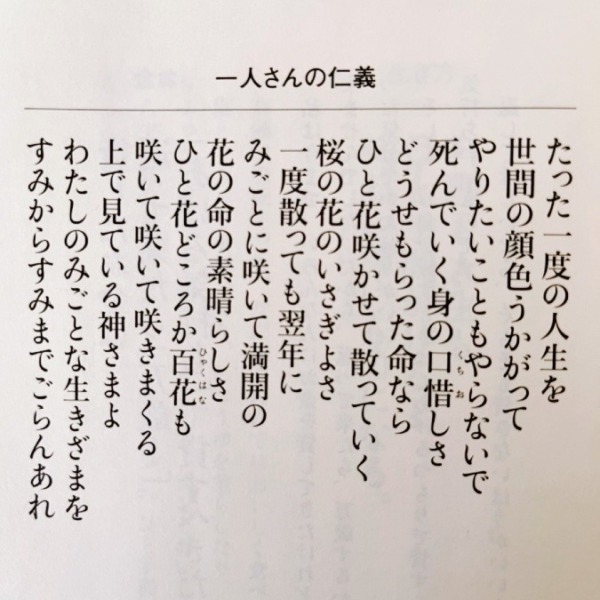 一人さんの仁義
たった一度の人生を
世間の顔色うかがって
やりたいこともやらないで
死んでいく身の口惜しさ
くちお
どうせもらった命なら
ひと花咲かせて散っていく
桜の花のいさぎよさ
一度散っても翌年に
みごとに咲いて満開の
花の命の素晴らしさ
ひと花どころか百花も
ひゃくはな
咲いて咲いて咲きまくる
上で見ている神さまよ
わたしのみごとな生きざまを
すみからすみまでごらんあれ